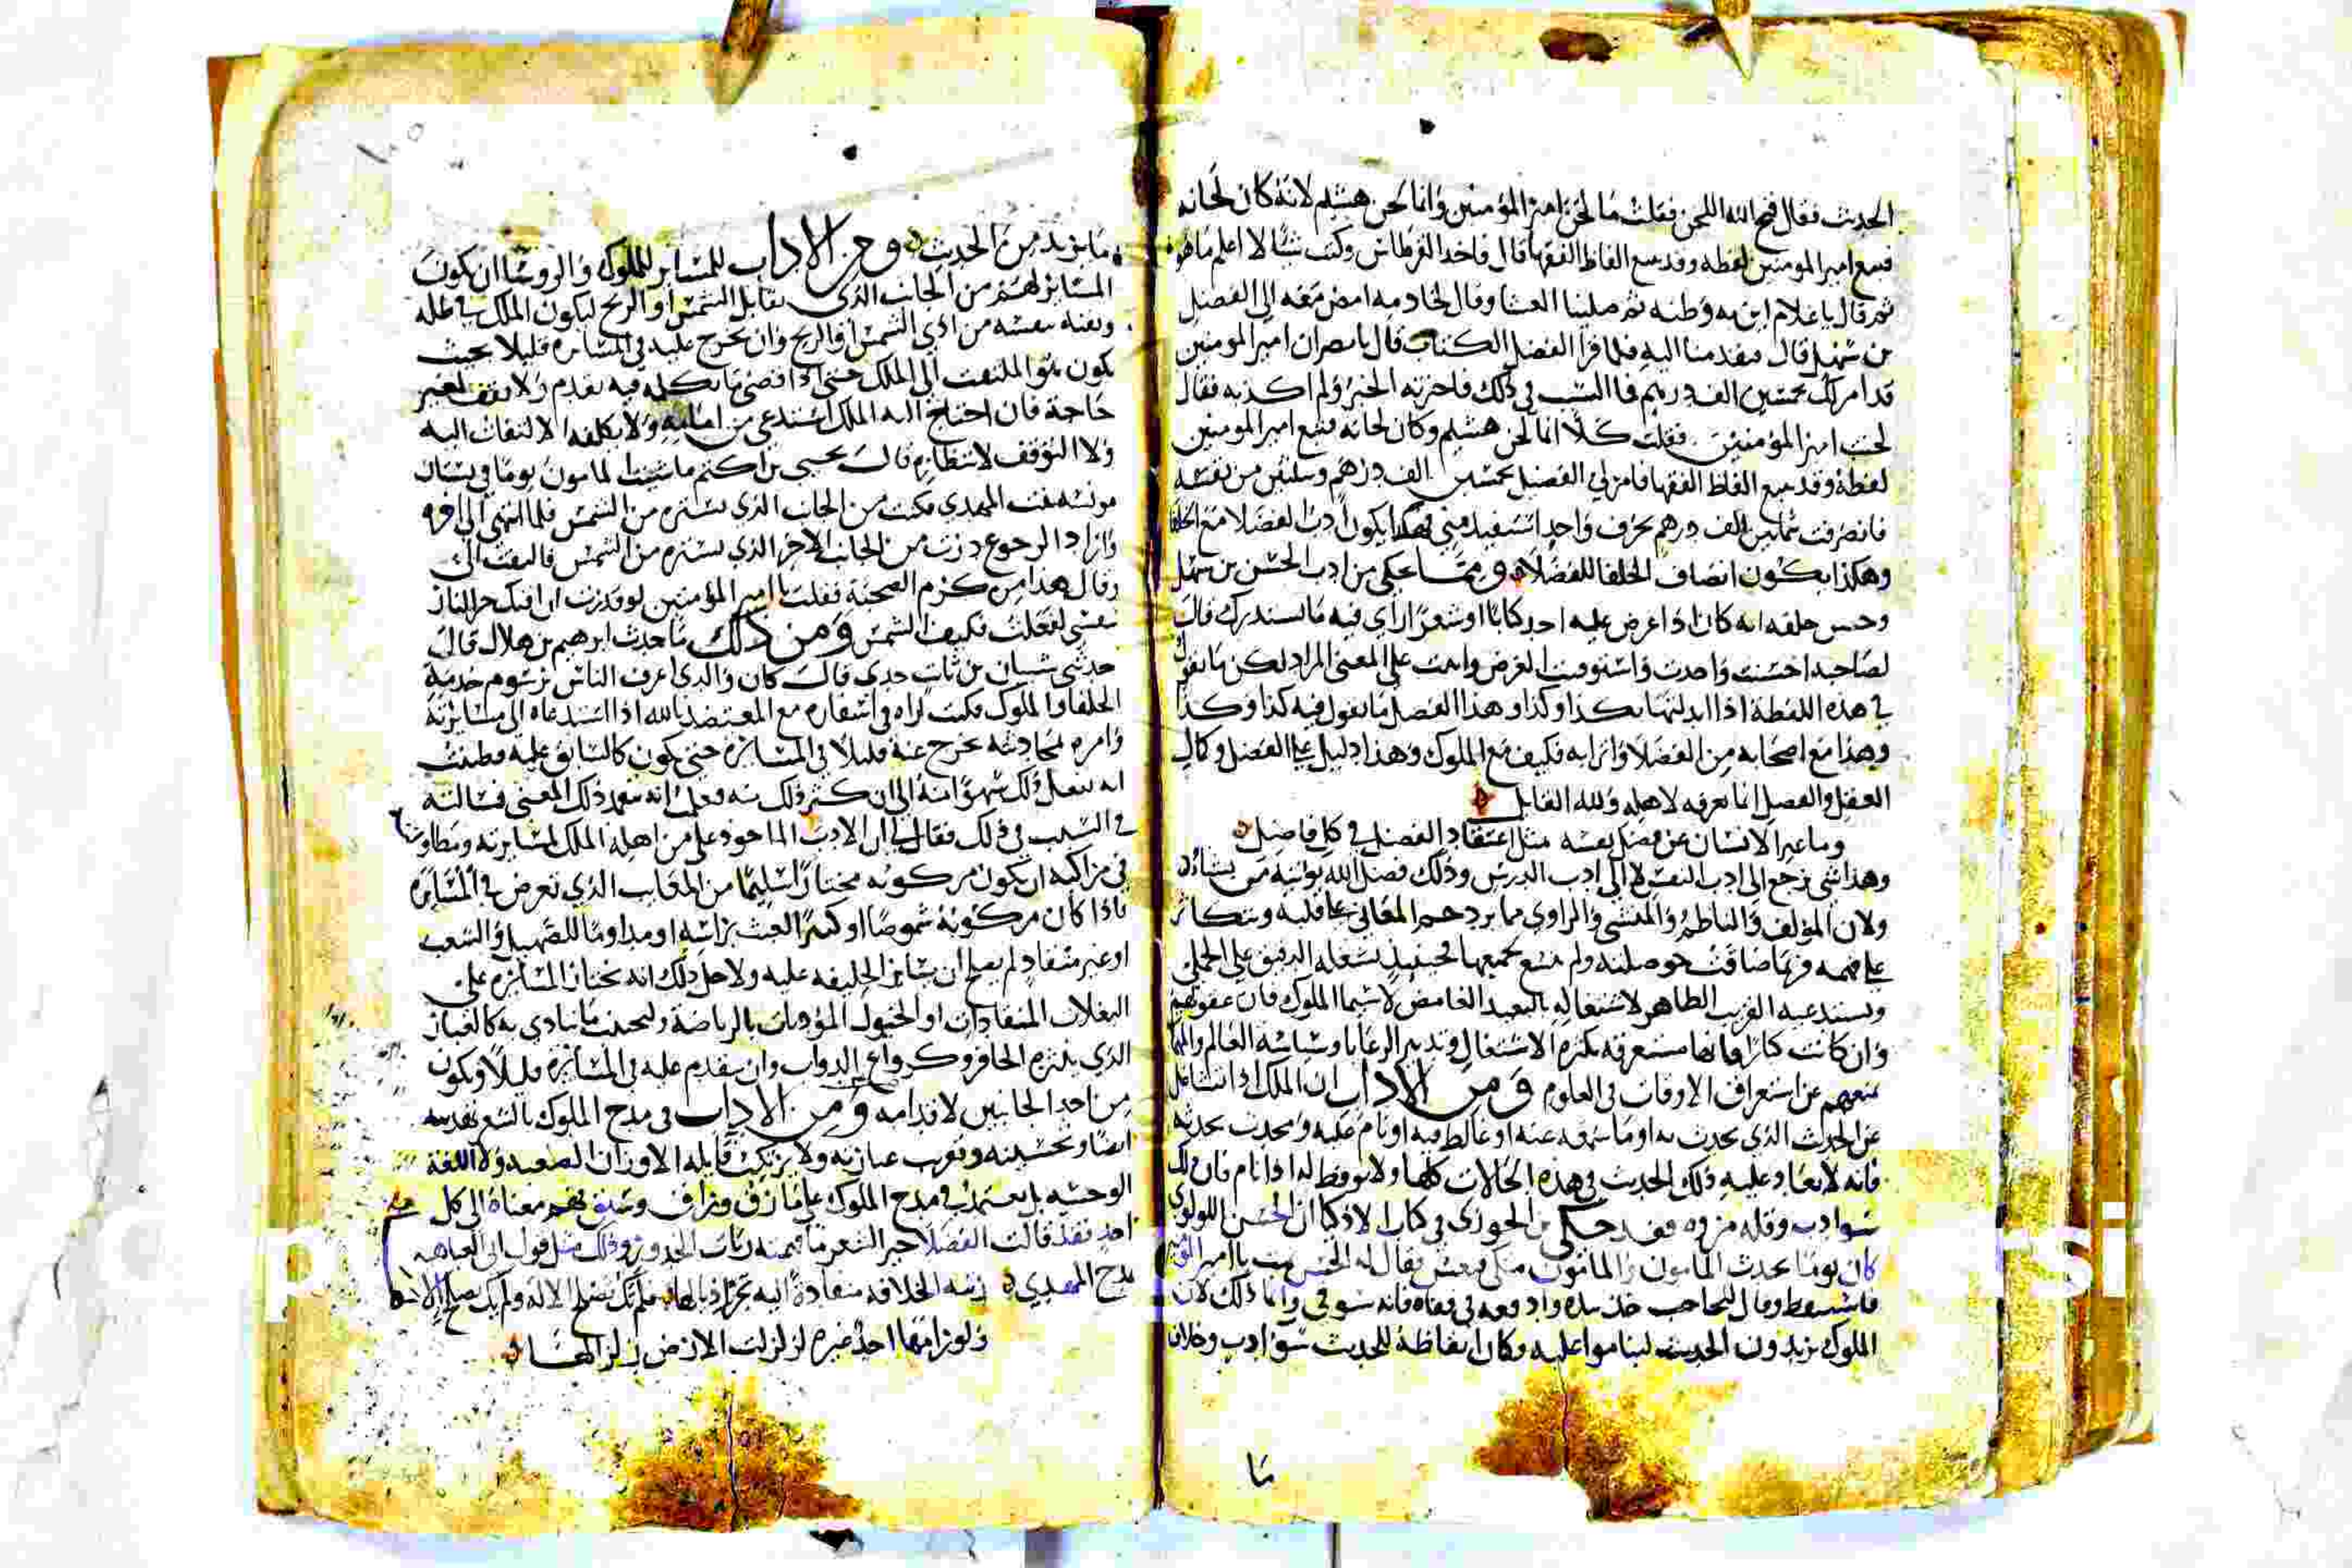 الحديث فقال قبح الله اللحن فقلت ما لحن امير المؤمنين وانما لحن هشيم لانه كان لحانه
فتبع امير المومنين لفظه وقد تتبع الفاظ الفقها قال فاخذ القرطاس وكتب شيا لا اعلم ما هو
ثم قال يا غلام اتربه وطينه ثم صلينا العشا وقال لخادمه امض معه الى الفضل
بن سهل قال فقدمنا اليه فلما قرا الفضل الكتاب قال يا نصر ان امير المومنين
قد امر لك بخمسين الف درهم فما السبب في ذلك فاخبرته الخبر ولم اكذبه فقال
لحنت امير المؤمنين فقلت كلا انما لحن هشيم وكان لحانه فتبع امير المومنين
لفظة وقد تتبع الفاظ الفقها فامر لي الفضل بخمسين الف درهم وثلثين من نفسه
فانصرفت بثمانين الف درهم بحرف واحد استفيد مني فهكذا يكون ادب الفضلا مع الخلفا
وهكذا يكون انصاف الخلفا للفضلا ومما يحكى من ادب الحسن بن سهل
وحسن خلقه انه كان اذا عرض عليه احد كتابا او شعرا راي فيه ما يستدرك قال
لصاحبه احسنت واجدت واستوفيت الغرض واتيت على المعنى المراد لكن ما تقول
في هذه اللفظة اذا ابدلتها بكذا وكذا وهذا الفصل ما تقول فيه كذا وكذا
وهذا مع اصحابه من الفضلا واترابه فكيف مع الملوك وهذا دليل على الفضل وكمال
العقل والفضل انما يعرفه لاهله ولله القايل
وما عبر الانسان عن فضل نفسه مثل اعتقاد الفضل في كل فاضل
وهذا شي يرجع الى ادب النفس لا الى ادب الدرس وذلك فضل الله يوتيه من يشاء
ولان المؤلف والناظم والمنشي والراوي مما يزدحم المعاني على قلبه وتتكاثر
على فهمه وربما ضاقت حوصلته ولم تتسع لجميعها فحينئذ يشغله الدقيق على الجلي
ويستدعيه القريب الظاهر لاشتغاله بالبعيد الغامض لا سيما الملوك فان عقولهم
وان كانت كبارا فانها مستغرقه بكثرة الاشتغال وتدبير الرعايا وسياسة العالم
تمنعهم عن استغراق الاوقات في العلوم ومن الاداب ان الملك اذا تشاغل
عن الحديث الذي يحدث به او ما سهو عنه او غالط فيه او نام عليه ومحدث يحدثه
فانه لا يعاد عليه ذلك الحديث في هذه الحالات كلها ولا يوقظ له اذا نام فان ذلك
سو ادب وقله مروه فقد حكى بن الجوزي في كتاب الاذكيا ان الحسن اللولوي
كان يوما يحدث المامون والمامون فنعس فقال له الحسن نمت يا امير المؤمنين
فاستيقظ وقال للحاجب خذ بيده وانما ذلك لان
الملوك يريدون الحديث ليناموا عليه وكان ايقاظه للحديث سو ادب وخلاف
ما
ما يريد من الحديث ومن الاداب للمساير للملوك والروسا ان يكون
المساير لهم من الجانب الذي يقابل الشمس او الريح ليكون الملك في ظله
ويقيه بنفسه من اذي الشمس او الريح وان يخرج عليه في المسايرة قليلا بحيث
يكون هو الملتفت الى الملك حتى اذا قضى ما يكلمه فيه تقدم ولا يقف لغير
حاجة فان احتاج اليه الملك استدعى من امامه ولا يكلفه الالتفات اليه
ولا التوقف لانتظاره قال يحيى بن اكثم ماشيت المامون يوما في بستان
مونسه بنت المهدي فكنت من الجانب الذي يستره من الشمس فلما انتهى الى اخره
واراد الرجوع درت من الجانب الاخر الذي يستره من الشمس فالتفت الي
وقال هذا من كرم الصحبة فقلت يا امير المؤمنين لو قدرت ان اقيك حر النار
بنفسي لفعلت فكيف الشمس ومن ذلك ما حدث ابرهيم بن هلال قال
حدثني سنان بن ثابت جدي قال كان والدي اعرف الناس برسوم خدمة
الخلفا والملوك فكنت اراه في اسفاره مع المعتضد بالله اذا استدعاه الى مسايرته
وامره بمحادثته يخرج عنه قليلا في المسايرة حتى يكون كالسابق عليه فظننت
انه يفعل ذلك سهوا منه الى ان كثر ذلك منه فعلمت انه تعمد ذلك المعنى فسالته
في السبب في ذلك فقال لي ان الادب الماخوذ على من اهله الملك لمسايرته
في مراكبه ان يكون مركوبه مختارا سليما من المعايب الذي تعرض في المسايرة
فاذا كان مركوبه شموصا او كثير العبث براسه او مداوما للصهيل والشعب
او غير منقاد لم يصلح ان يساير الخليفه عليه ولاجل ذلك انه يختار المسايرة على
البغلات المنقادات او الخيول المؤدبات بالرياضة وليجتنب ما يتاذى به كالغبار
الذي يلزم الحافر وكرواع الدواب وان يتقدم عليه في المسايرة قليلا ويكون
من احد الجانبين لا قدامه ومن الاداب في مدح الملوك بالشعر
ايضا وتحسينه وتقريب عبارته ولا يرتكب قايله الاوزان الصعبه ولا اللغة
الوحشيه بل يعتمد في مدح الملوك على ما رق وراق وسبق فهم معناه الى كل
احد فقد قالت الفضلا خير الشعر ما فهمته ربات الخدور وذلك مثل قول ابي العتاهيه
يمدح المهدي اتته الخلافه منقادة اليه تجرر اذيالها فلم تك تصلح الا له ولم يك يصلح الا لها
ولو رامها احد غيره لزلزلت الارض زلزالها